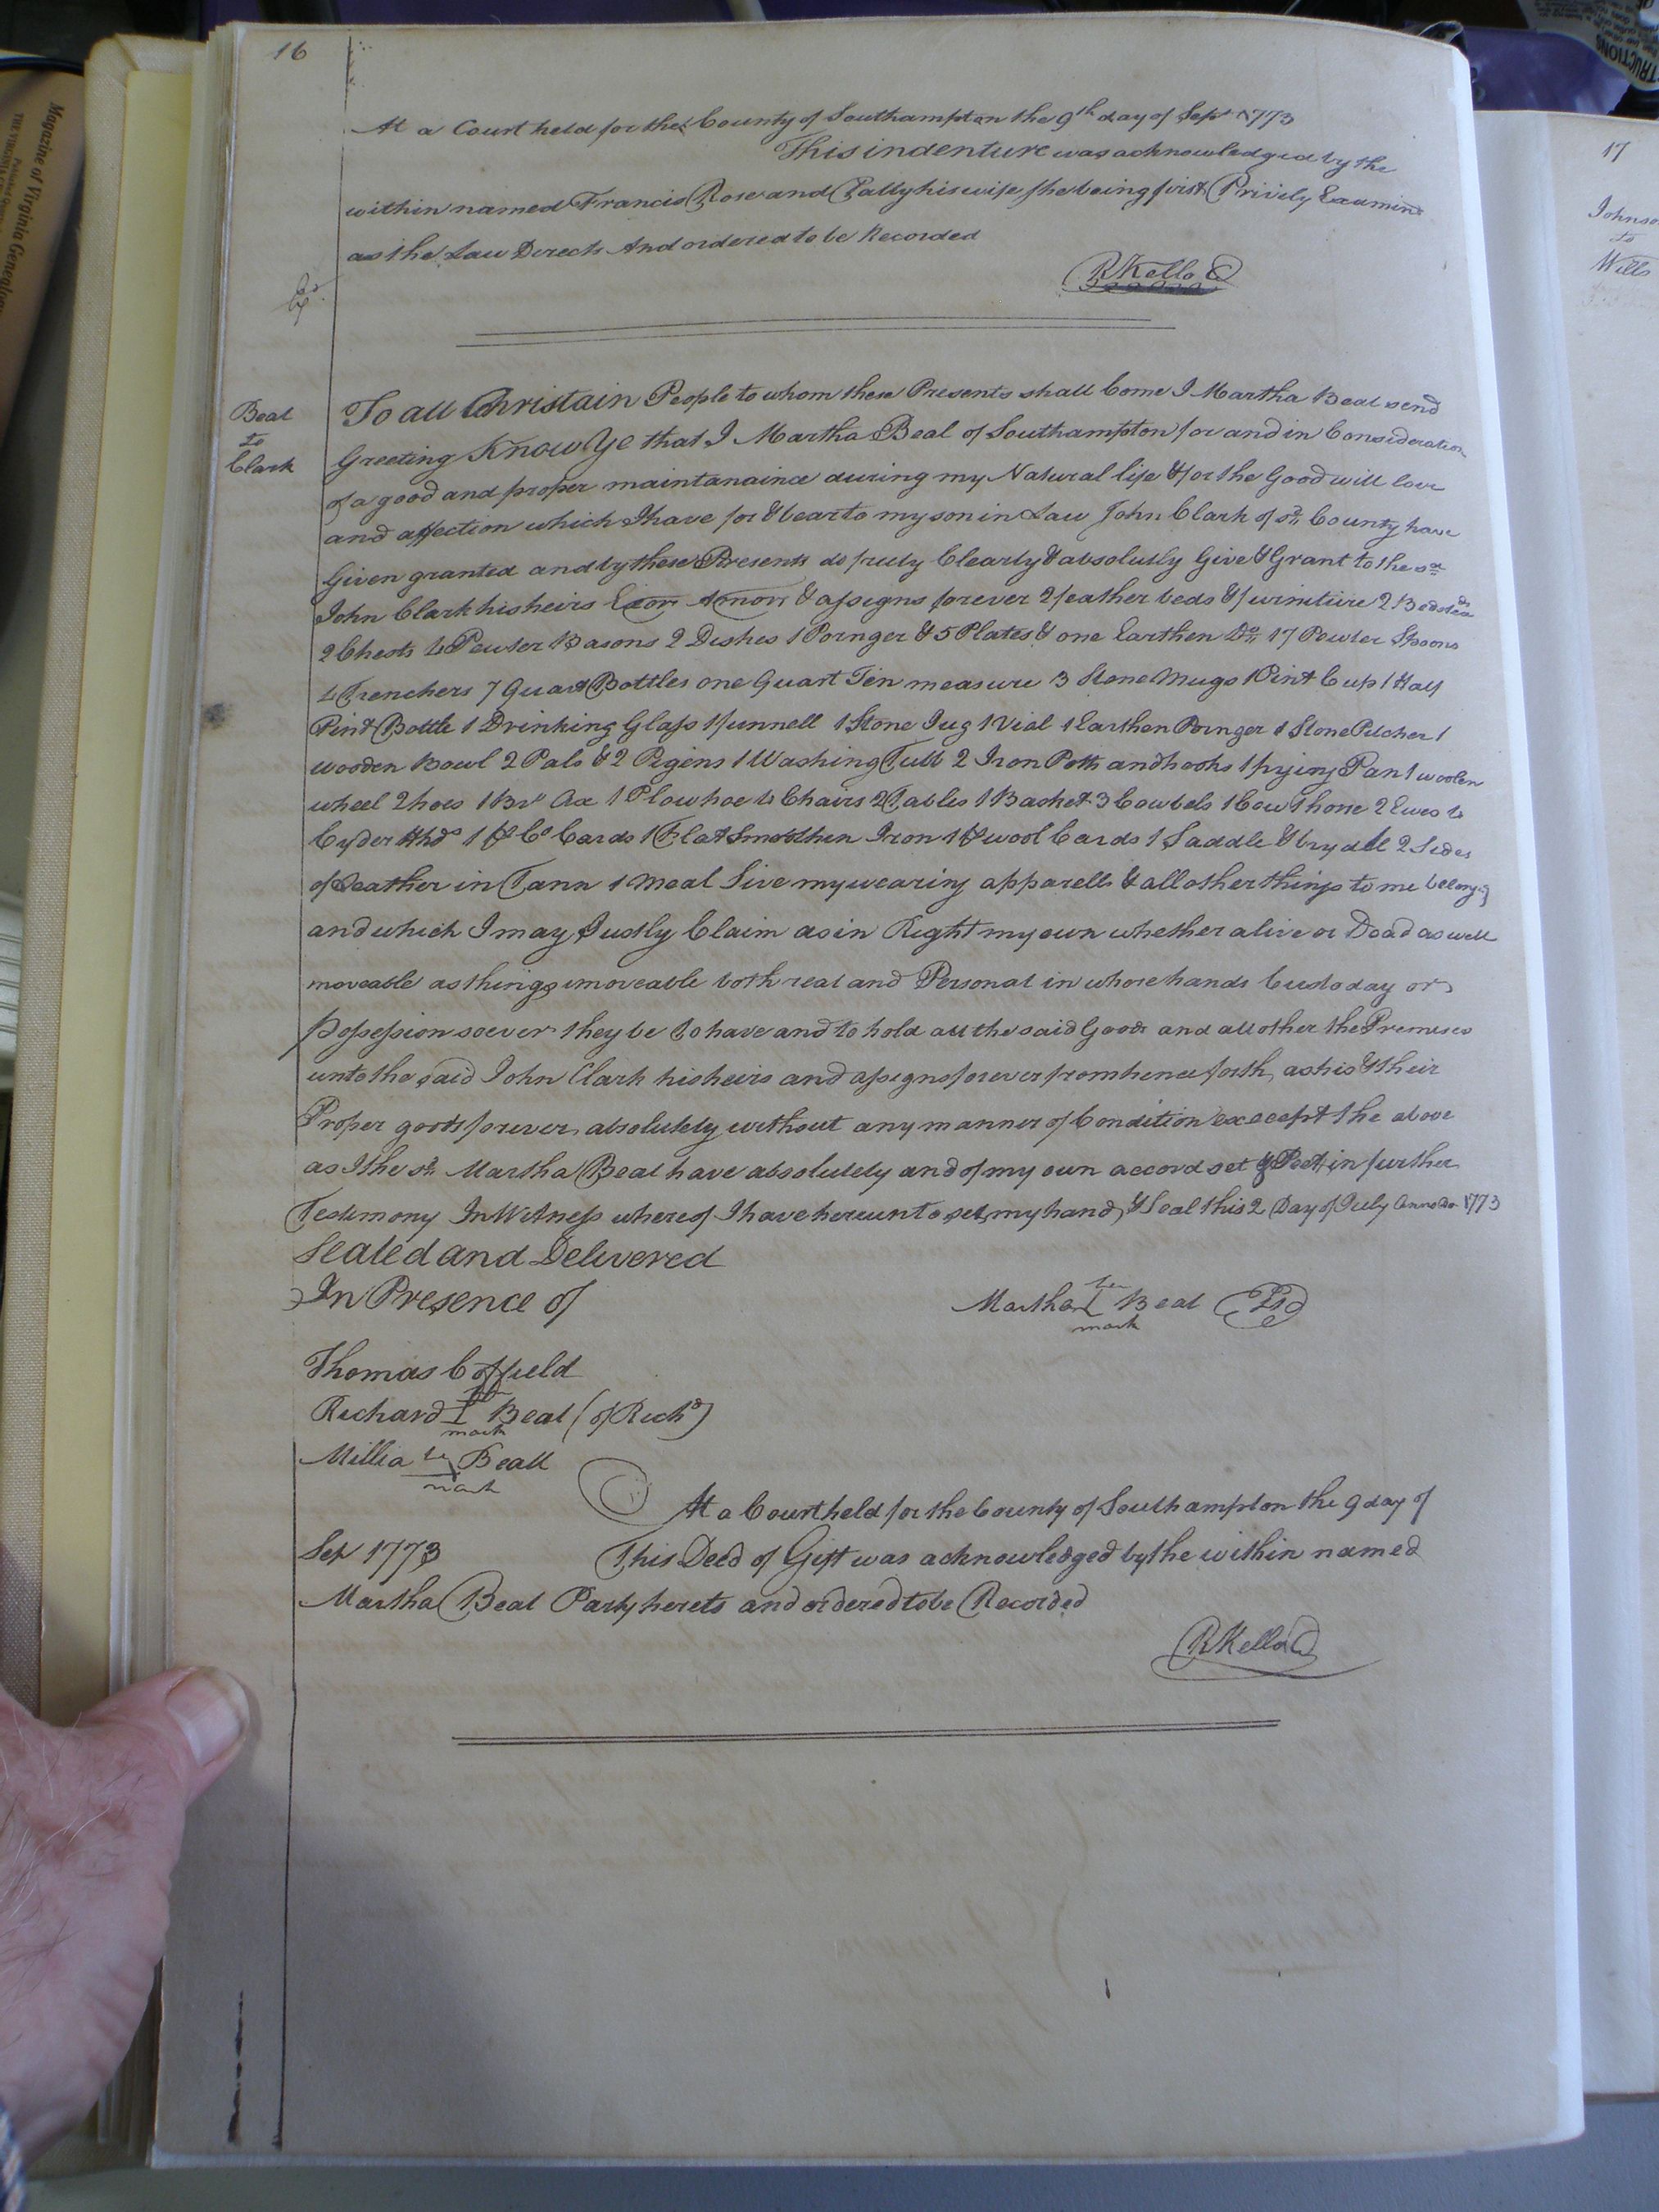 16
At a Court held for the County of Southampton the 9th day of Sept 1773
This indenture was acknowledged by the
within named Francis Rose and his wife she being first Privily Examind
as the Law Directs And ordered to be Recorded
RKello C
Beal
to
Clark
To all Christain People to whom these Presents shall Come I Martha Beal send
Greeting Know Ye that I Martha Beal of Southampton for and in Consideration
of a good and proper maintanaince during my Natural life & for the Good will love
and affection which I have for & bear to my son in Law John Clark of sd County have
Given granted and by these Presents do fruly Clearly & absolutly Give & Grant to the sd
John Clark his heirs Exors Admors & assigns forever 2 feather beds & furniture 2 Bedsteads
2 Chests 4 Pewter Basons 2 Dishes 1 Pornger & 5 Plates & one Earthen Do 17 Pewter Spoons
4 Trenchers 7 Quart Bottles one Quart Tin measure 3 Stone Mugs 1 Pint Cup 1 Half
Pint Bottle 1 Drinking Glass 1 funnell 1 Stone Jug 1 Vial 1 Earthen Pornger 1 Stone Pitcher 1
wooden Bowl 2 Pals & 2 Pigins 1 Washing Tubb 2 Iron Potts and hooks 1 frying Pan 1 woolen
wheel 2 hoes 1 Ax 1 Plow hoe 4 Chairs 2 Tables 1 Basket 3 Cowbels 1 Cow 1 hone 2 Ewes 4
Cyder Hhds 1 pr Co Cards 1 Flat Smoothen Iron 1 pr wool Cards 1 Saddle & brydle 2 Sides
of Leather in Tann 1 meal Sive my wearing apparell & all other things to me belonging
and which I may Justly Claim as in Right my own whether alive or Dead as well
moveable as things imoveable both real and Personal in whose hands Custoday or
Possession soever they be To have and to hold all the said Goods and all other the Premises
unto the said John Clark his heirs and assigns forever from henceforth, as his & their
Proper goods forever, absolutely without any manner of Condition excecept the above
as I the sd Martha Beal have absolutely and of my own accord set in further
Testimony In Witness whereof I have hereunto set my hand & Seal this 2 Day of July Anno Do 1773
Sealed and Delivered
In Presence of
her
Martha Beal
mark
Thomas Coffield
his
Richard Beal (of Richd)
mark
Millia her Beall
mark
At a Court held for the County of Southampton the 9 day of
Sep 1773 This Deed of Gift was acknowledged by the within named
Martha Beal Party hereto and ordered to be Recorded
RKello C
17
Johnso
to
Wills
Magazine of Virginia Genealogy